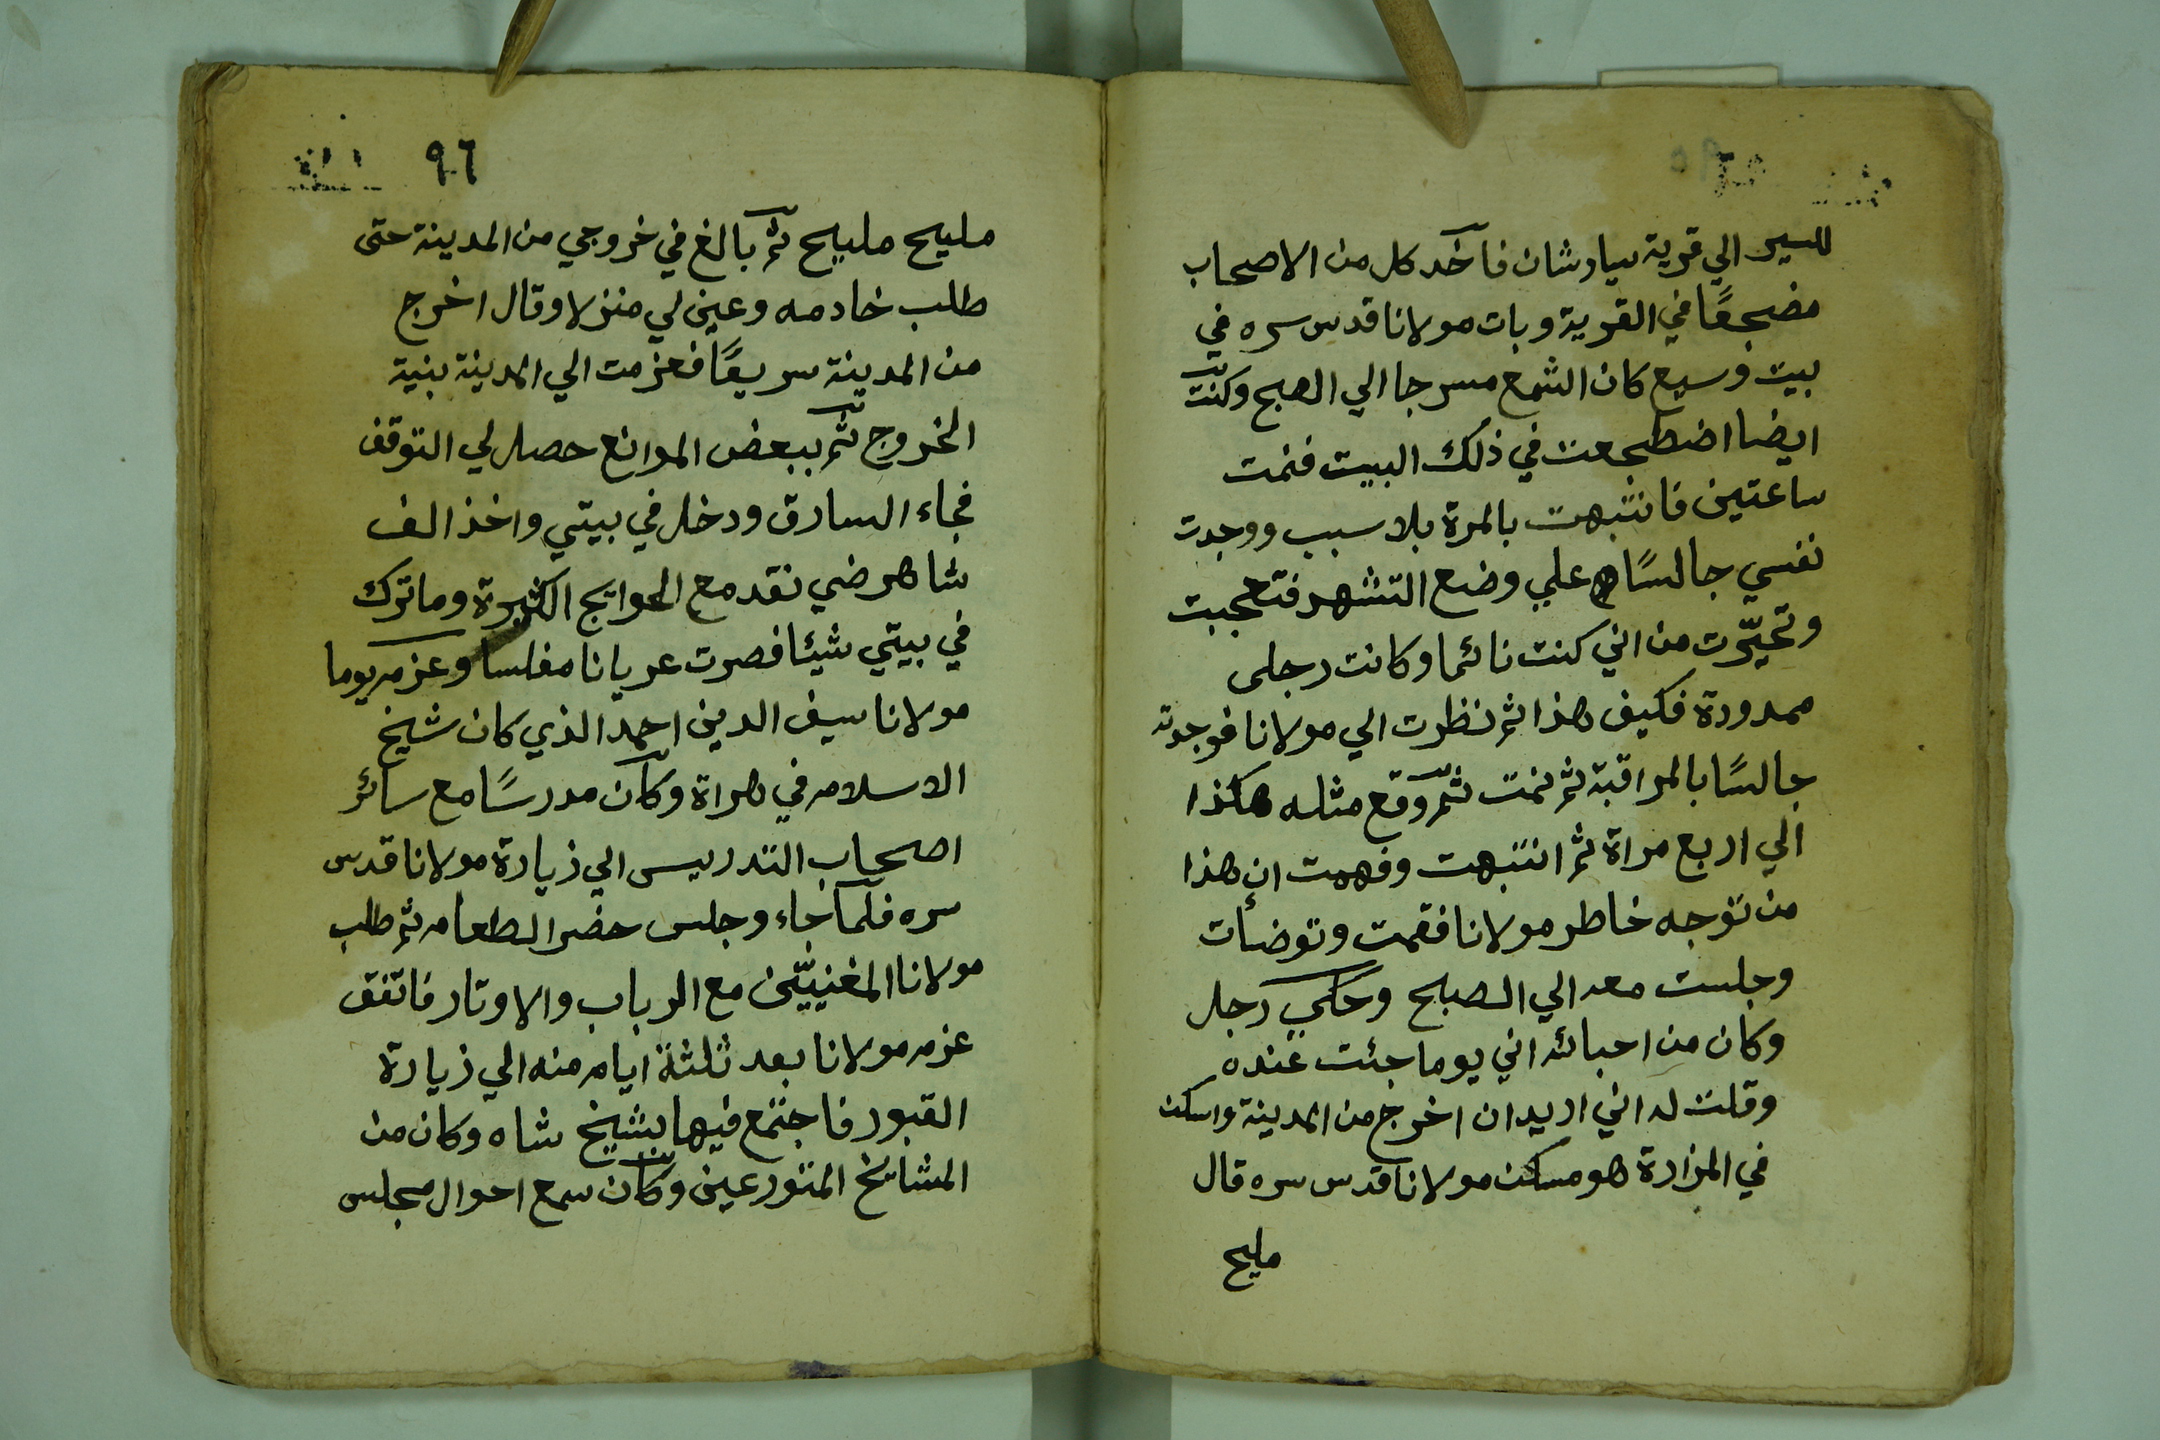 للسير الي قرية سياوشان فأخد كل من الاصحاب
مضجعًا في القرية وبات مولانا قدس سره في
بيت وسيع كان الشمع مسرجا الي الصبح وكنت
ايضا اضطجعت في ذلك البيت فنمت
ساعتين فانتبهت بالمرة بلا سبب ووجدت
نفسي جالسًا علي وضع التشهد فتعجبت
وتحيّرت من اني كنت نائما وكانت رجلى
ممدودة فكيف هذا ثم نظرت الي مولانا فوجدته
جالسًا بالمراقبة ثم نمت ثم وقع مثله هكذا
الي اربع مراة ثم انتبهت وفهمت ان هذا
من توجه خاطر مولانا فقمت وتوضأت
وجلست معه الي الصبح وحكي رجل
وكان من احبائه اني يوما جئت عنده
وقلت له اني اريد ان اخرج من المدينة واسكن
في المزارة هو مسكن مولانا قدس سره قال
مليح
٩٦
مليح مليح ثم بالغ في خروجي من المدينة حتى
طلب خادمه وعين لي منزلا وقال اخرج
من المدينة سريعًا فعزمت الي المدينة بنية
الخروج ثم ببعض الموانع حصل لي التوقف
فجاء السارق ودخل في بيتي واخذ الف
شاهرضي نقد مع الحوايج الكثيرة وما ترك
في بيتي شيئا فصرت عريانا مفلسا وعزم يوما
مولانا سيف الدين احمد الذي كان شيخ
الاسلام في هراة وكان مدرسًا مع سائر
اصحاب التدريس الي زيارة مولانا قدس
سره فلما جاء وجلس حضر الطعام ثم طلب
مولانا المغنييّن مع الرباب والاوتار فاتفق
عزم مولانا بعد ثلثة ايام منه الي زيارة
القبور فاجتمع فيها بشيخ شاه وكان من
المشايخ المتورعين وكان سمع احوال مجلس